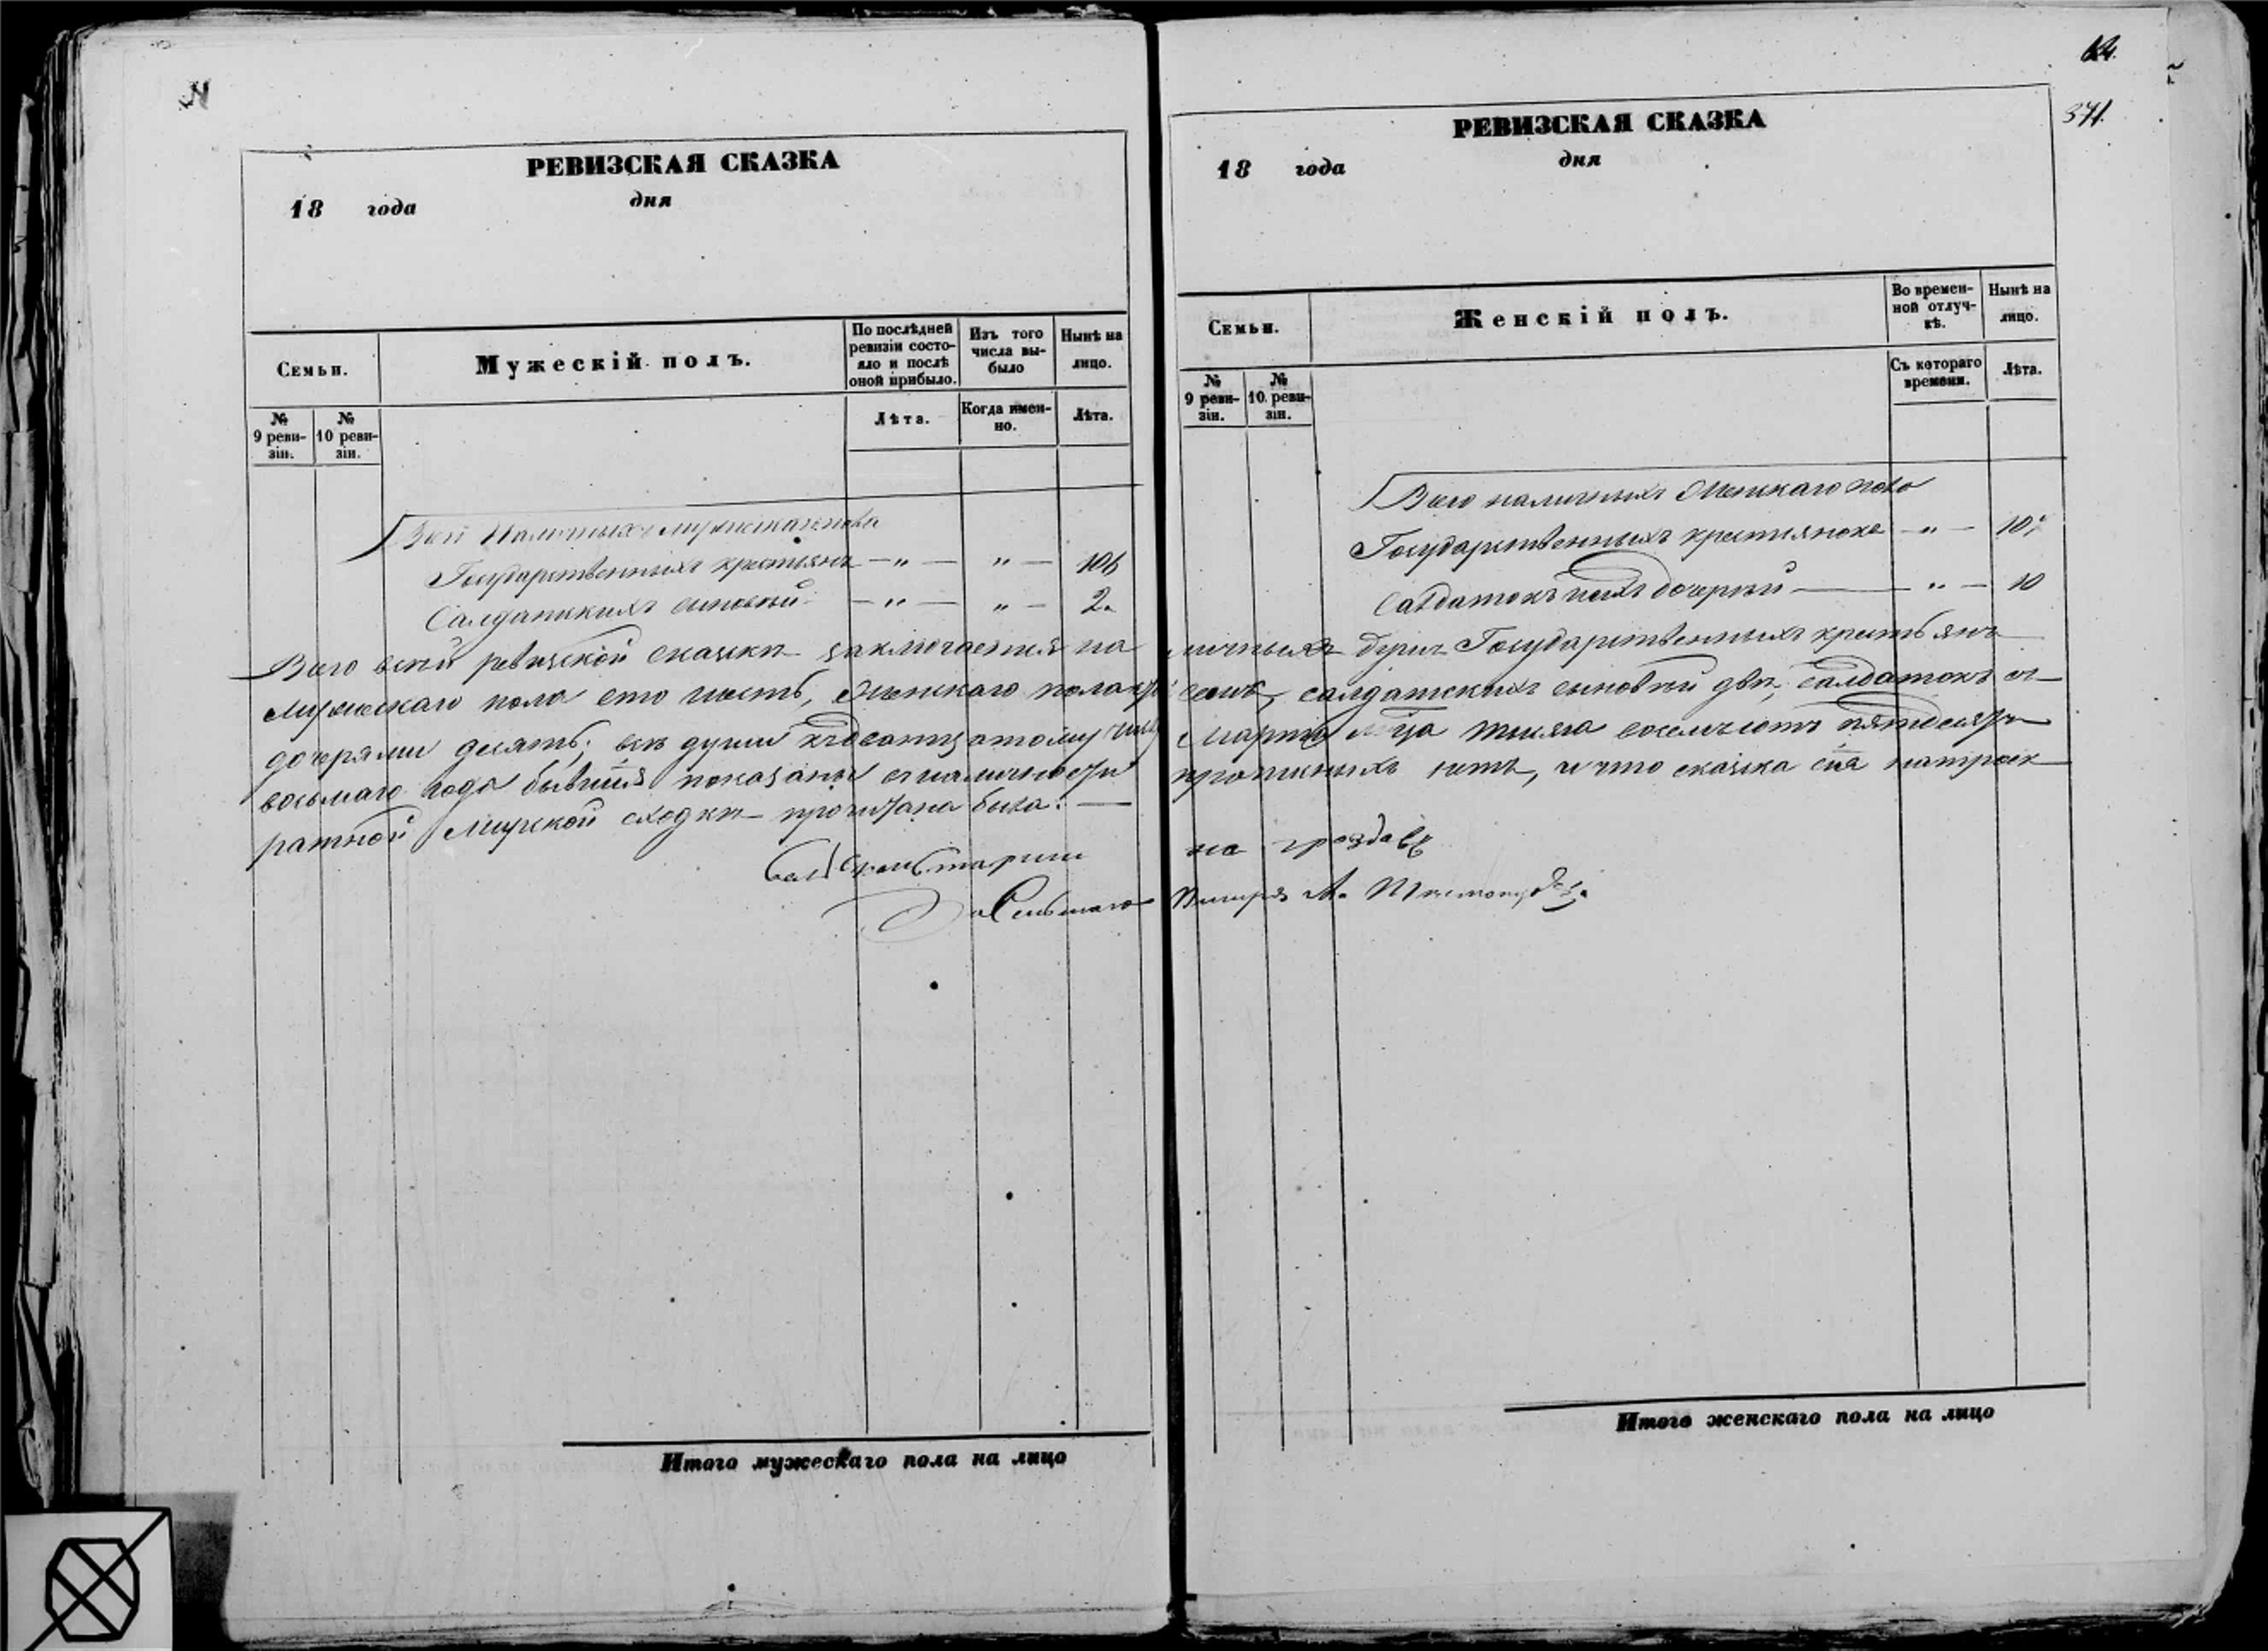 РЕВИЗСКАЯ СКАЗКА
18 года дня
Семьи.
Мужескій полъ.
По послѣдней ревизіи состояло и послѣ оной прибыло.
Изъ того числа выбыло
Нынѣ на лицо.
№ 9 ревизіи.
№ 10 ревизіи.
Лѣта.
Когда именно.
Лѣта.
Всего Наличныхъ мужескаго пола
Государственныхъ крестьянъ — „ — „ — 106
Салдатскихъ сыновей — „ — „ — 2.
Всего всей ревизской сказки заключается на
мужескаго пола сто шесть, Женскаго пола
дочерями десять; всѣ души къ двадцатому числу
восьмаго года бывшія показаны
ратной Мирской сходки прочитана была. —
Итого мужескаго пола на лицо
371.
РЕВИЗСКАЯ СКАЗКА
18 года дня
Семьи.
Женскій полъ.
Во временной отлучкѣ.
Нынѣ на лицо.
№ 9 ревизіи.
№ 10 ревизіи.
Съ котораго времени.
Лѣта.
Всего наличныхъ Женскаго пола
Государственныхъ крестьянокъ — „ —
Салдатокъ ихъ дочерей — „ — 10
личныхъ душъ Государственныхъ крестьянъ
салдатскихъ сыновей двѣ, Салдатокъ съ
Марта тысяча восемьсотъ пятьдесятъ
нѣтъ, и что сказка сія натроек
Итого женскаго пола на лицо